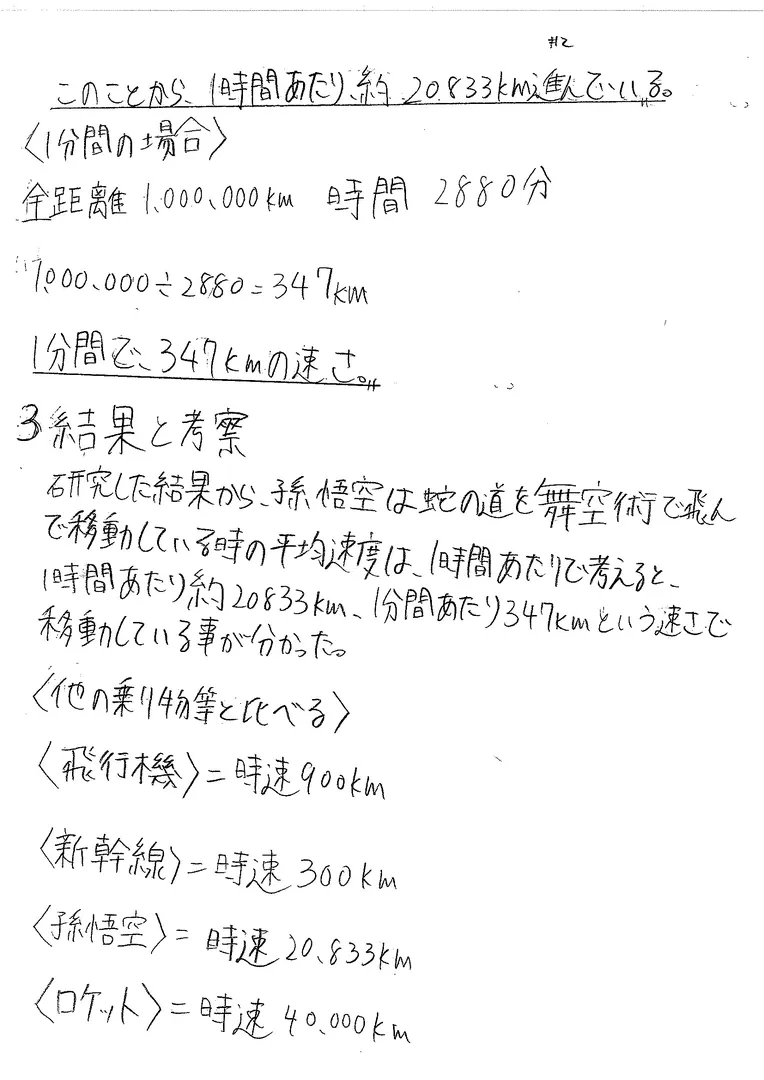 #2
このことから、1時間あたり、約 20.833km進んでいる。
〈1分間の場合〉
全距離 1,000,000km 時間 2880分
1,000,000÷2880=347km
1分間で、347kmの速さ。
3 結果と考察
研究した結果から、孫悟空は蛇の道を舞空術で飛ん
で移動している時の平均速度は、1時間あたりで考えると、
1時間あたり約20833km、1分間あたり347kmという速さで
移動している事が分かった。
〈他の乗り物等と比べる〉
〈飛行機〉=時速900km
〈新幹線〉=時速 300km
〈孫悟空〉= 時速 20,833km
〈ロケット〉=時速 40,000km